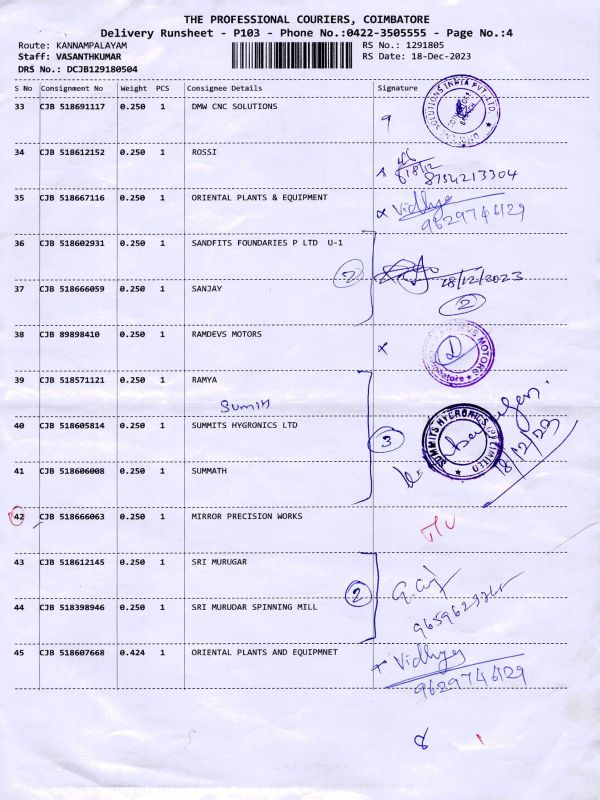 THE PROFESSIONAL COURIERS, COIMBATORE
Delivery Runsheet - P103 - Phone No.:0422-3505555 - Page No.:4
Route: KANNAMPALAYAM RS No.: 1291805
Staff: VASANTHKUMAR RS Date: 18-Dec-2023
DRS No.: DCJB129180504
S No Consignment No Weight PCS Consignee Details Signature
33 CJB 518691117 0.250 1 DMW CNC SOLUTIONS
SOLUTIONS INDIA PVT. LTD.
34 CJB 518612152 0.250 1 ROSSI
18/12
8754213304
35 CJB 518667116 0.250 1 ORIENTAL PLANTS & EQUIPMENT
Vidhya
9629746129
36 CJB 518602931 0.250 1 SANDFITS FOUNDARIES P LTD U-1
2
18/12/2023
37 CJB 518666059 0.250 1 SANJAY
2
38 CJB 89898410 0.250 1 RAMDEVS MOTORS
RAMDEVS MOTORS
Coimbatore
39 CJB 518571121 0.250 1 RAMYA
Sumith
40 CJB 518605814 0.250 1 SUMMITS HYGRONICS LTD
3
SUMMITS HYGRONICS (P) LIMITED
18/12/23
41 CJB 518606008 0.250 1 SUMMATH
42 CJB 518666063 0.250 1 MIRROR PRECISION WORKS
43 CJB 518612145 0.250 1 SRI MURUGAR
2
44 CJB 518398946 0.250 1 SRI MURUDAR SPINNING MILL
45 CJB 518607668 0.424 1 ORIENTAL PLANTS AND EQUIPMNET
Vidhya
9629746129
8